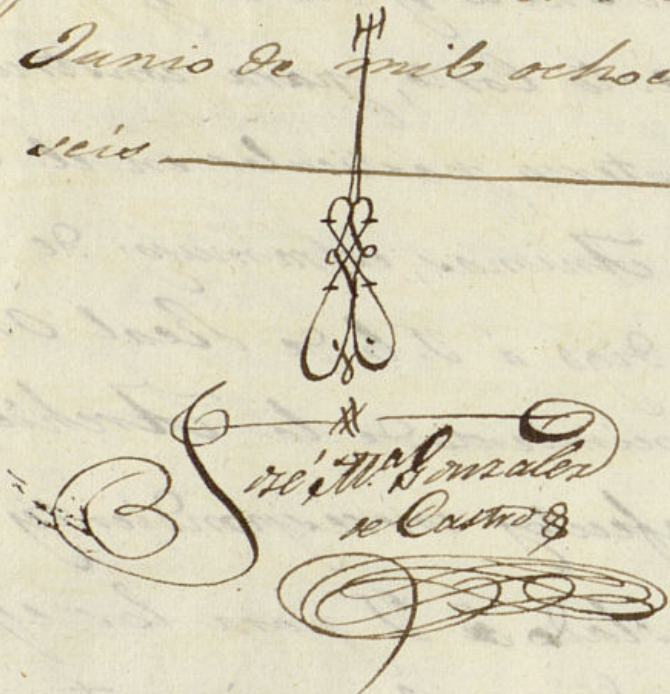 Junio de mil ochoc
seis
José M.ª Gonzalez
de Castro